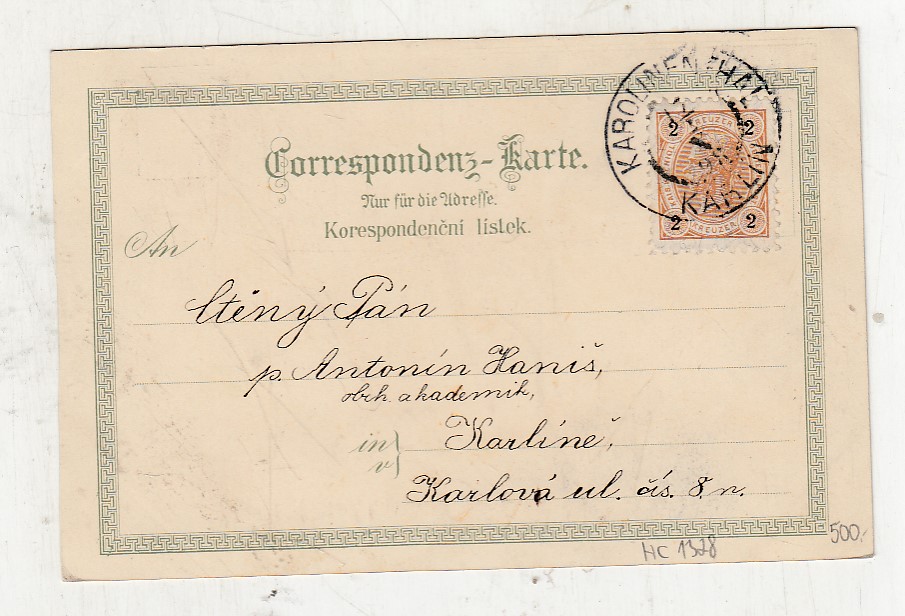 KAROLINENTHAL
KARLÍN
98
2 KREUZER 2
2 KREUZER 2
Correspondenz-Karte.
Nur für die Adresse.
Korespondenční lístek.
An
Ctěný Pán
p. Antonín Haniš,
obch. akademik,
in
v
Karlíně,
Karlová ul. čís. 8 n.
HC 1328
500,-